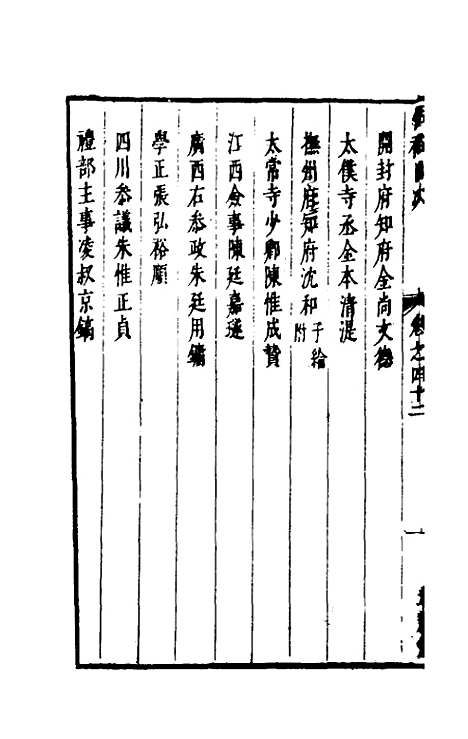 卷之四十二
開封府知府金尚文德
太僕寺丞金本清湜
撫州府知府沈和附子綸
太常寺少卿陳惟成贊
江西僉事陳廷嘉璲
廣西右叅政朱廷用鏞
學正張弘裕顒
四川叅議朱惟正貞
禮部主事凌叔京鎬